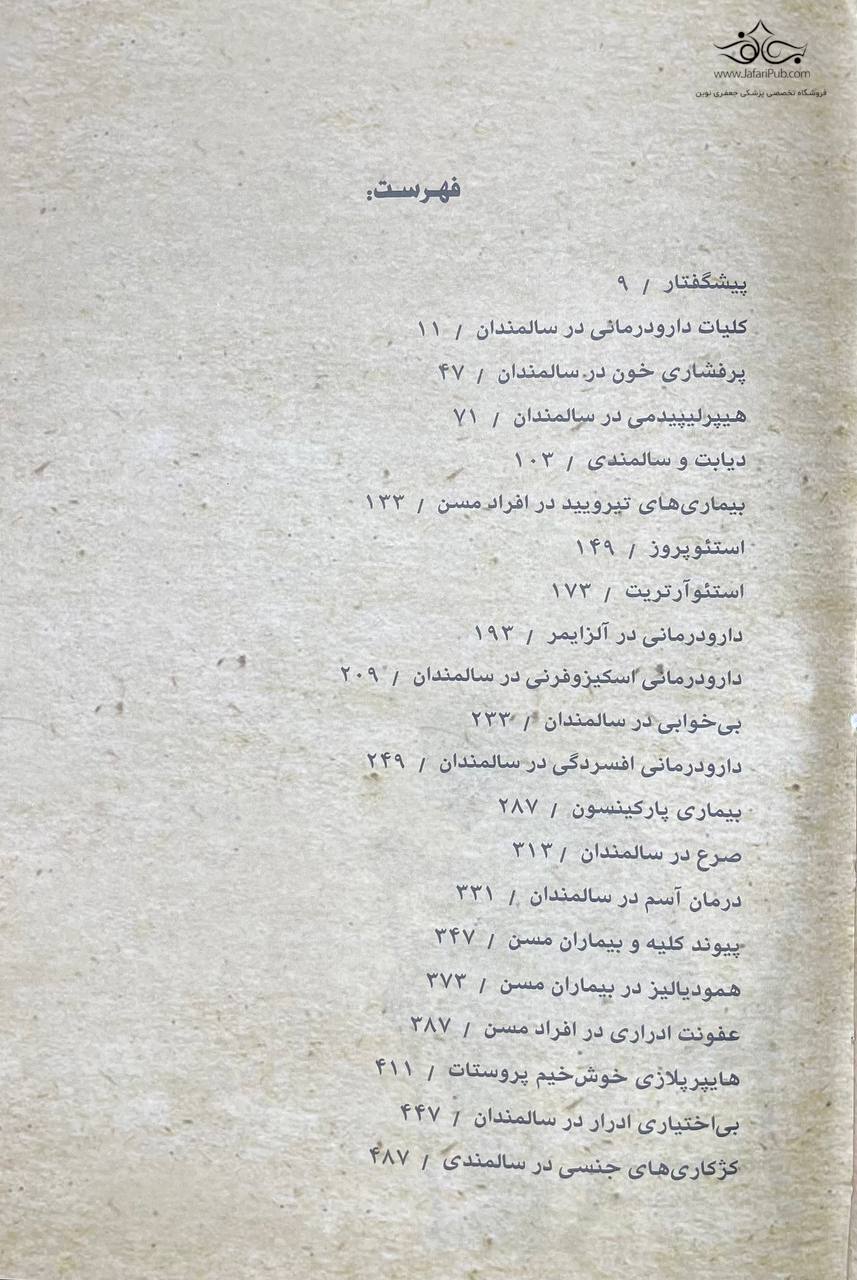 www.JafariPub.com
فروشگاه تخصصی پزشکی جعفری نوین
فهرست:
پیشگفتار / ۹
کلیات دارودرمانی در سالمندان / ۱۱
پرفشاری خون در سالمندان / ۴۷
هیپرلیپیدمی در سالمندان / ۷۱
دیابت و سالمندی / ۱۰۳
بیماری‌های تیرویید در افراد مسن / ۱۳۳
استئوپروز / ۱۴۹
استئوآرتریت / ۱۷۳
دارودرمانی در آلزایمر / ۱۹۳
دارودرمانی اسکیزوفرنی در سالمندان / ۲۰۹
بی‌خوابی در سالمندان / ۲۳۳
دارودرمانی افسردگی در سالمندان / ۲۴۹
بیماری پارکینسون / ۲۸۷
صرع در سالمندان / ۳۱۳
درمان آسم در سالمندان / ۳۳۱
پیوند کلیه و بیماران مسن / ۳۴۷
همودیالیز در بیماران مسن / ۳۷۳
عفونت ادراری در افراد مسن / ۳۸۷
هایپرپلازی خوش‌خیم پروستات / ۴۱۱
بی‌اختیاری ادرار در سالمندان / ۴۴۷
کژکاری‌های جنسی در سالمندی / ۴۸۷